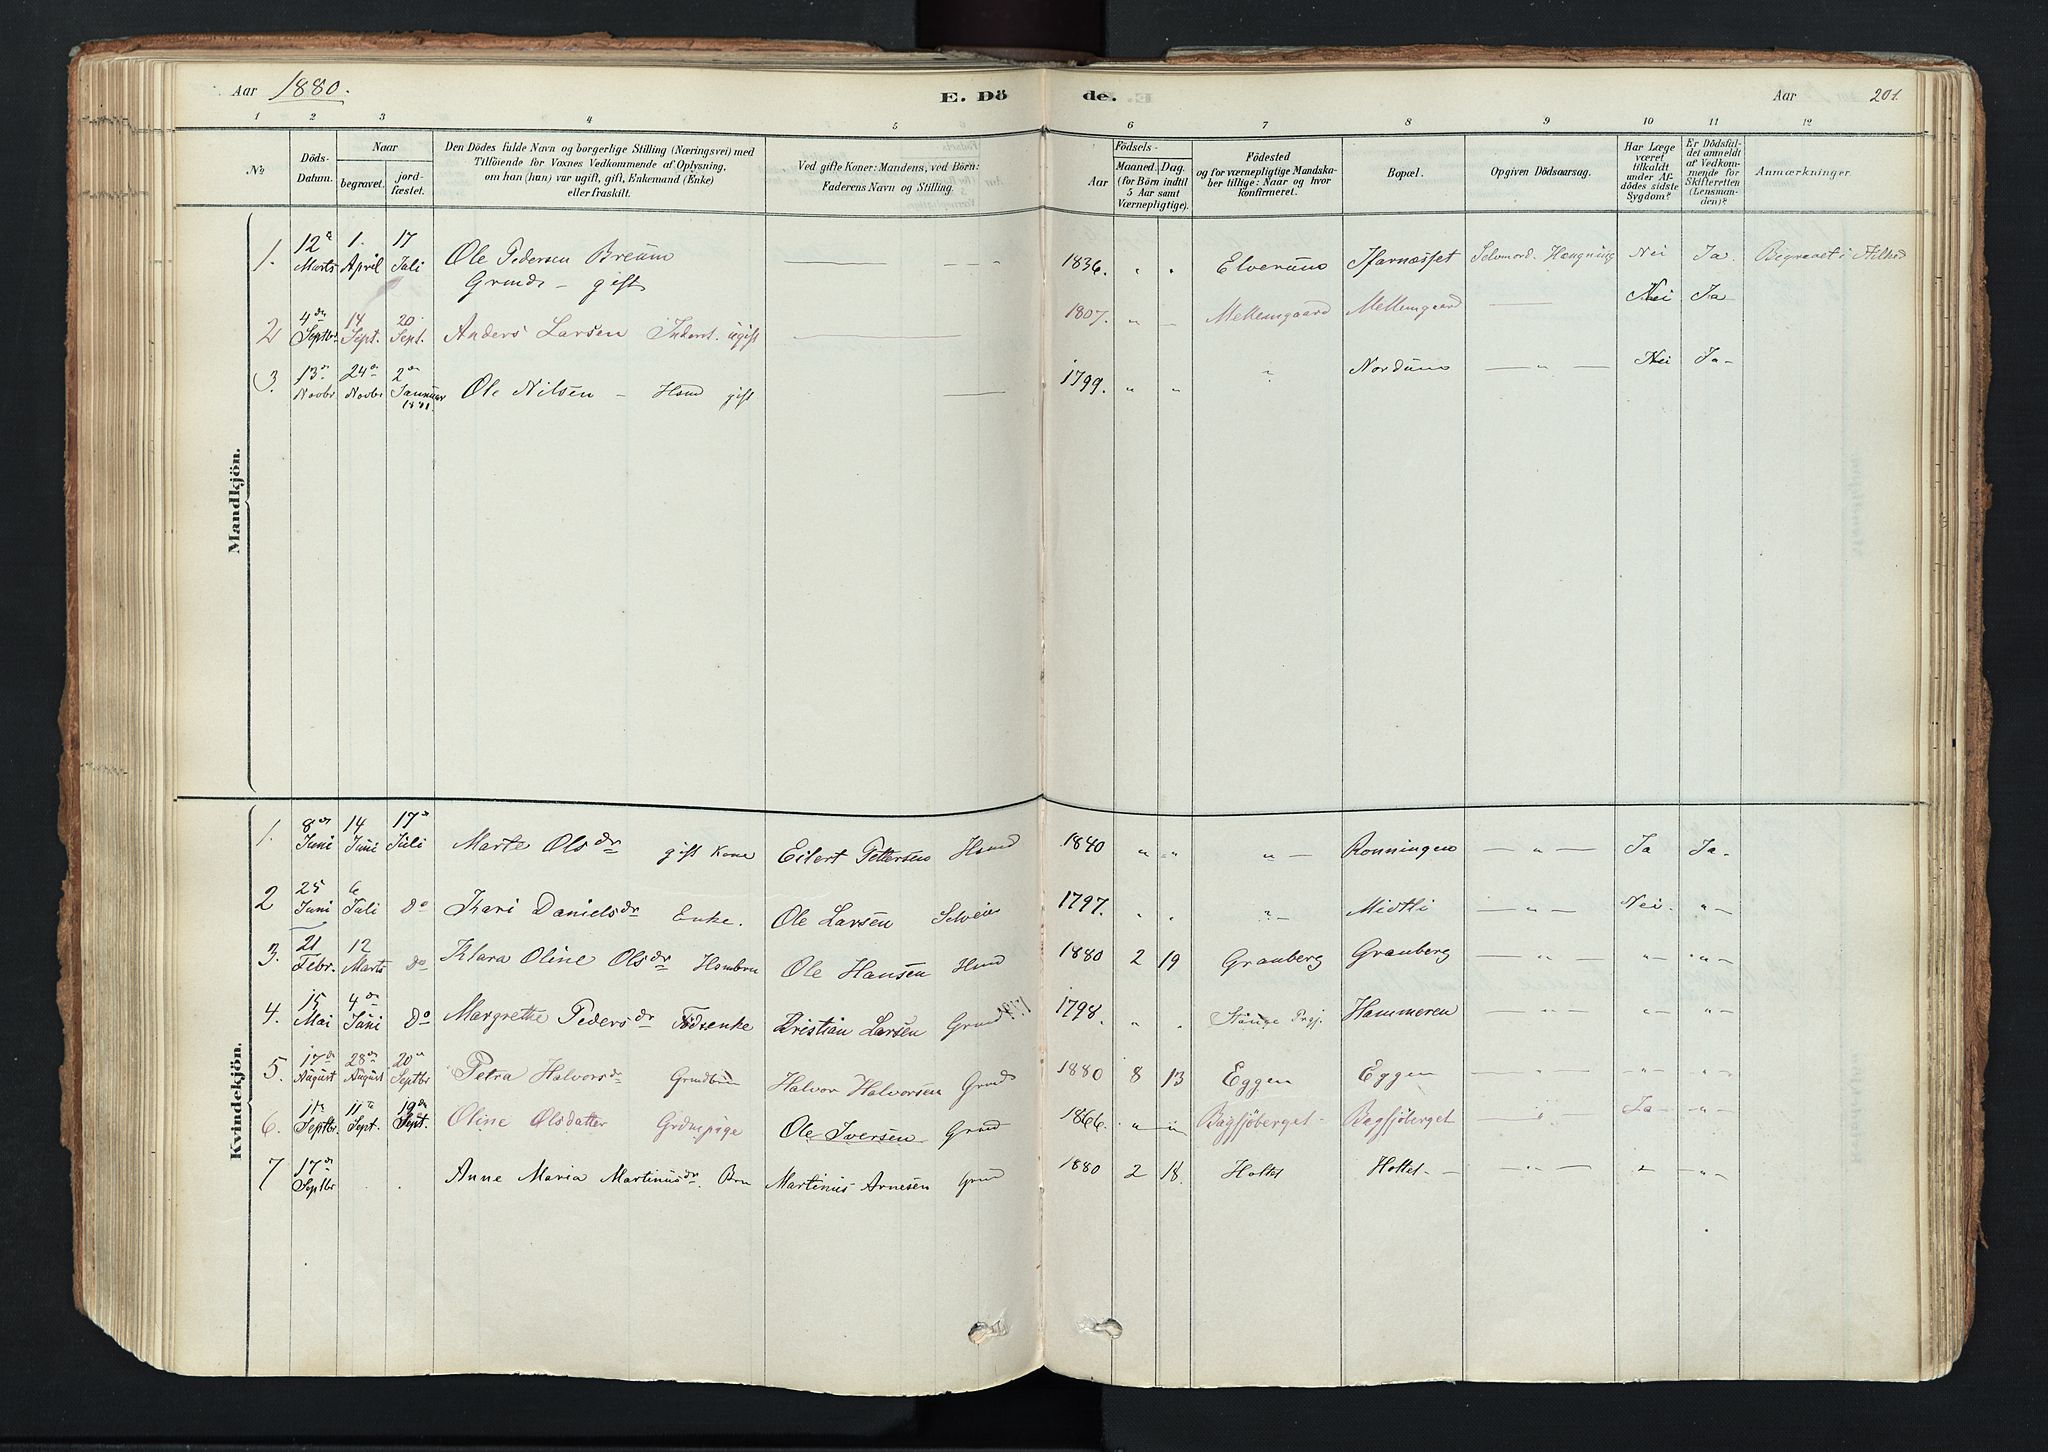 Aar 1880. E. Dö de. Aar 201.
1 2 3 4 5 6 7 8 9 10 11 12
No. Döds-Datum. Naar begravet. jordfæstet. Den Dödes fulde Navn og borgerlige Stilling (Næringsvei) med Tilföiende for Voxnes Vedkommende af Oplysning, om han (hun) var ugift, gift, Enkemand (Enke) eller fraskilt. Ved gifte Koner: Mandens, ved Börn: Faderens Navn og Stilling. Födsels- Aar Maaned. Dag. (for Börn indtil 5 Aar samt Værnepligtige). Födested og for værnepligtige Mandskaber tillige: Naar og hvor konfirmeret. Bopæl. Opgiven Dödsaarsag. Har Læge været tilkaldt under Afdödes sidste Sygdom? Er Dödsfaldet anmeldt af Vedkommende for Skifteretten (Lensmanden)? Anmærkninger.
Mandkjön.
1. 12te Marts 1. April 17 Juli Ole Pedersen Breum — — " 1836. " " Elverum Selvmord. Hængning Nei Ja. Begravet i
Grmd — gift
2 4de Septbr. 14 Sept. 20. Sept. Anders Larsen Inderst. ugift — 1807. " — Mellemgaard Mellemgaard — Nei Ja
3. 13de Novbr 24de Novbr 2den Januar 1881. Ole Nilsen — Hsmd gift — 1799. " " " Nordum — " — Nei Ja-
Kvindekjön.
1. 8de Juni 14 Juni 17de Juli Marte Olsdr gift Kone Eilert Pettersen Hsmd 1840 " " " — Ronningen — " — Ja Ja-
2 25 Juni 6 Juli Do Kari Danielsdr Enke. Ole Larsen Selveier 1797. " " " — Midtli — " — Nei. " -
3. 21 Febr. 12 Marts Do Klara Oline Olsdr Hsmbrn Ole Hansen Hsmd 1880 2 19 Granberg Granberg — " — " - " -
4. 15 Mai 4de Juni Do Margrethe Pedersdr Födsenke Kristian Larsen Grmd 1798. " " Stange Prgj. Hammeren — " — " - " -
5. 17de August 28de August 20de Septbr Petra Halvorsdr Grmdbrn Halvor Halvorsen Grmd 1880 8 13 Eggen Eggen — " — " - " -
6. 11te Septbr. 11te Sept. 19de Sept. Oline Olsdatter Grdmpige Ole Iversen Grmd 1866. " " Bagsjöberget - Bagsjöberget — " — Ja - " -
7 17de Septbr . . Anne Maria Martinusdr. Brn Martinus Arnesen Grmd 1880 2 18. Holtet Holtet - — " — " - " -